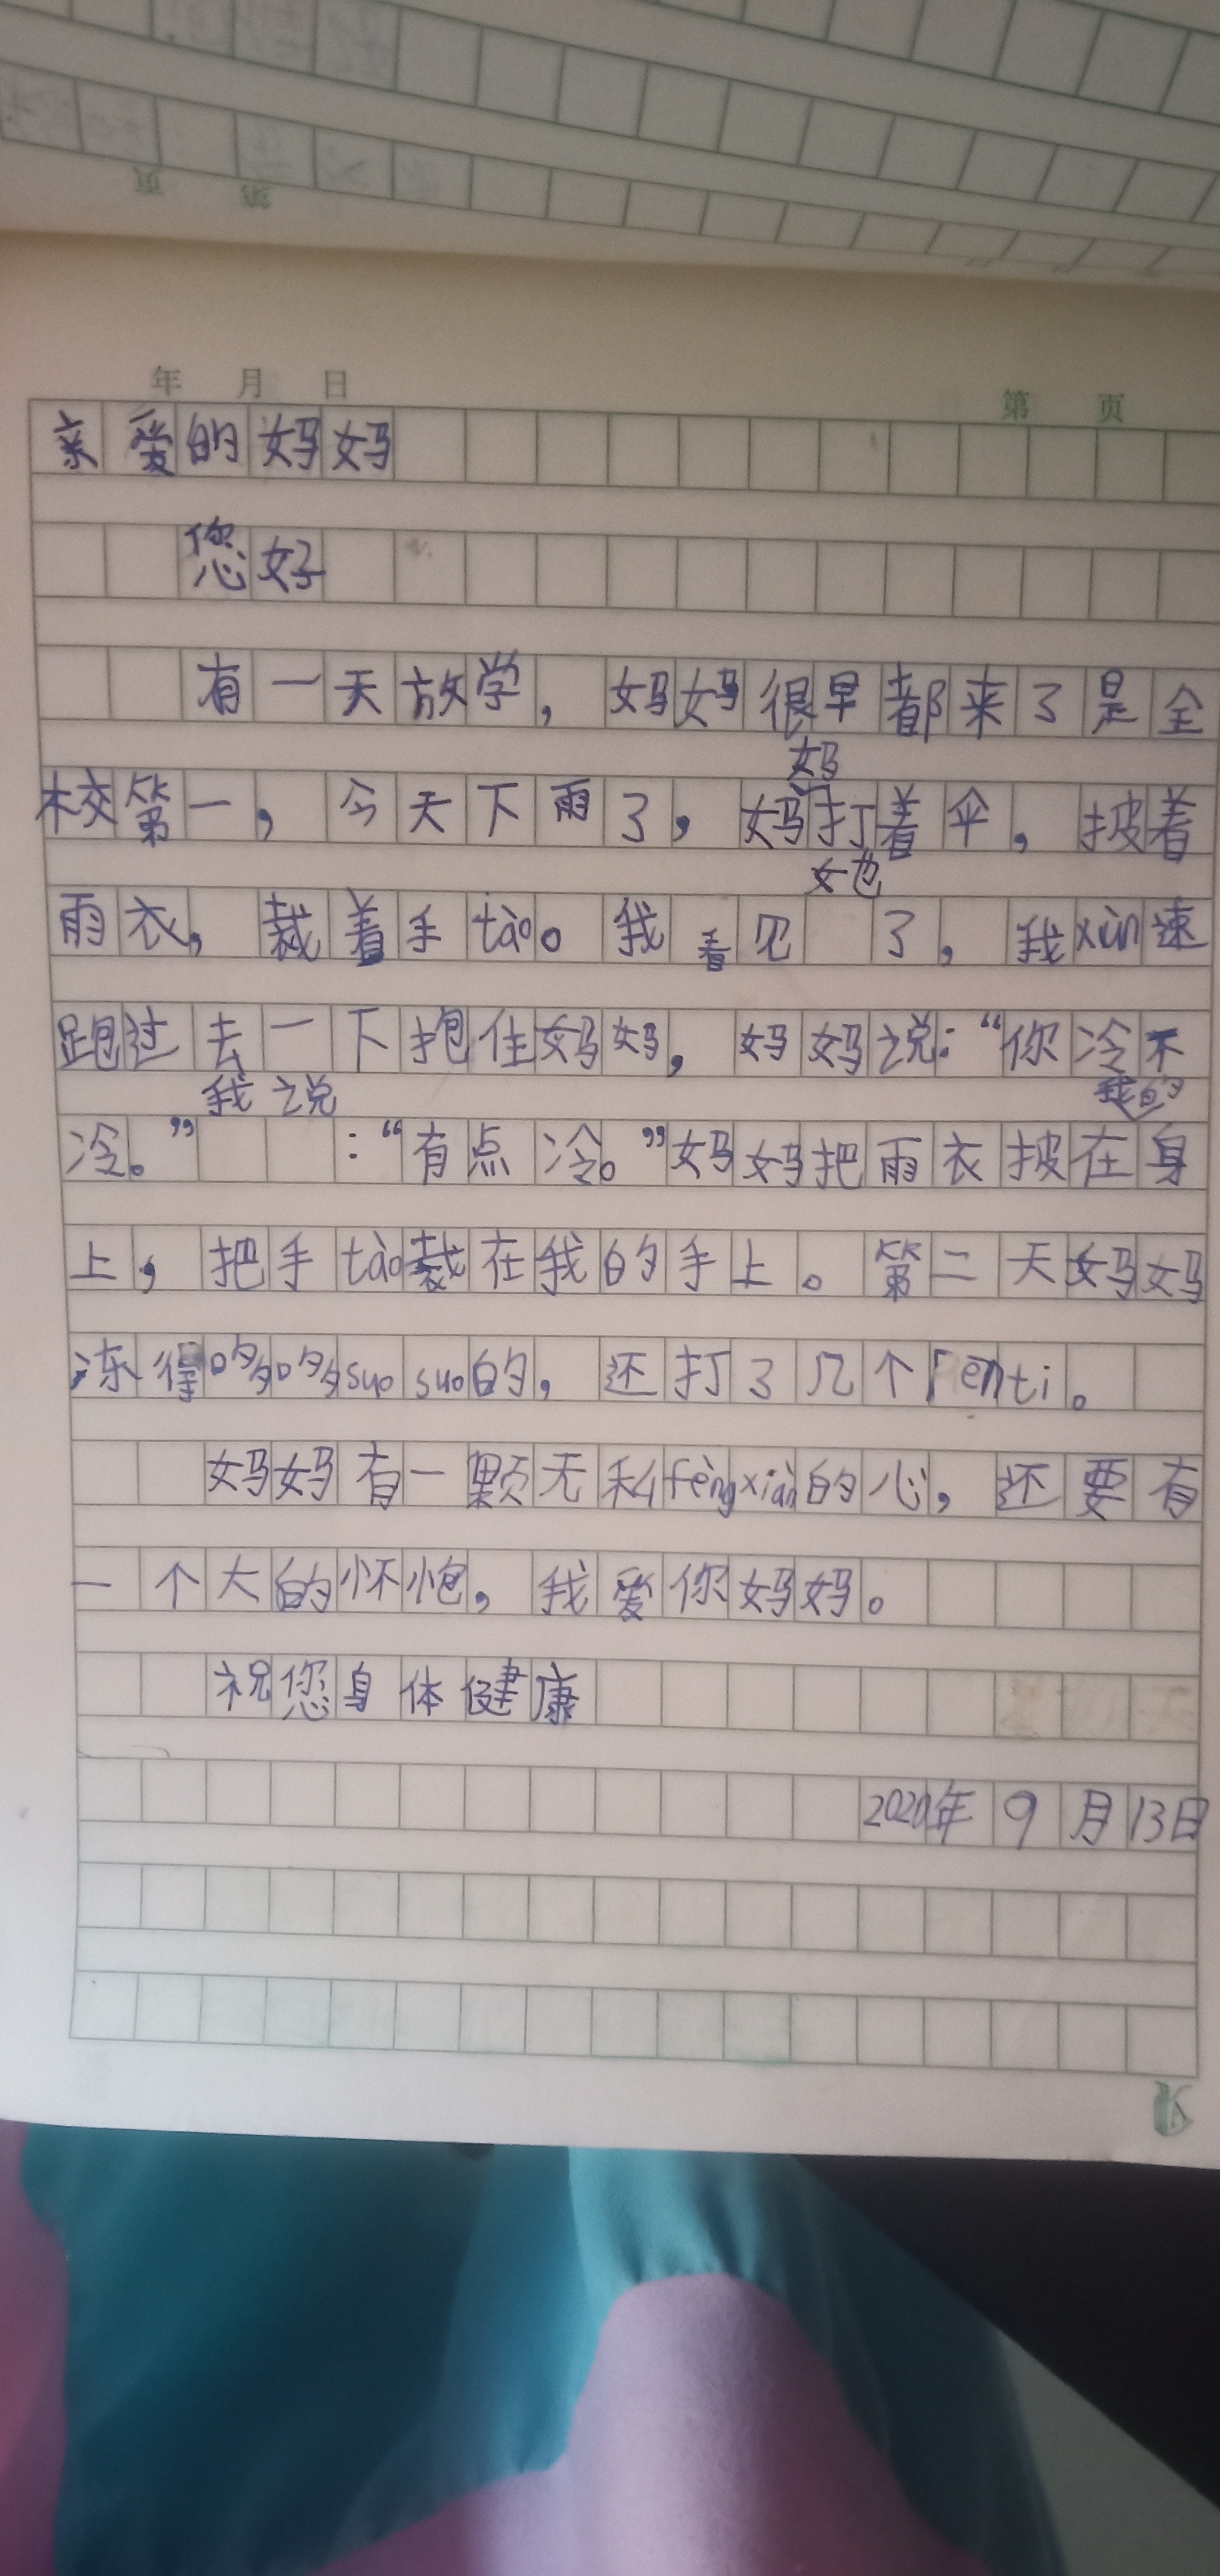 年 月 日 第 页
亲爱的妈妈
您好
有一天放学，妈妈很早都来了是全
校第一，今天下雨了，妈妈打着伞，披着
雨衣，裁着手tào。我看见她了，我xùn速
跑过去一下抱住妈妈，妈妈说：“你冷不
冷。”我说：“有点冷。”妈妈把雨衣披在我的身
上，把手tào裁在我的手上。第二天妈妈
冻得哆哆suo suo的，还打了几个Penti。
妈妈有一颗无私fèngxiàn的心，还要有
一个大的怀抱，我爱你妈妈。
祝您身体健康
2020年9月13日